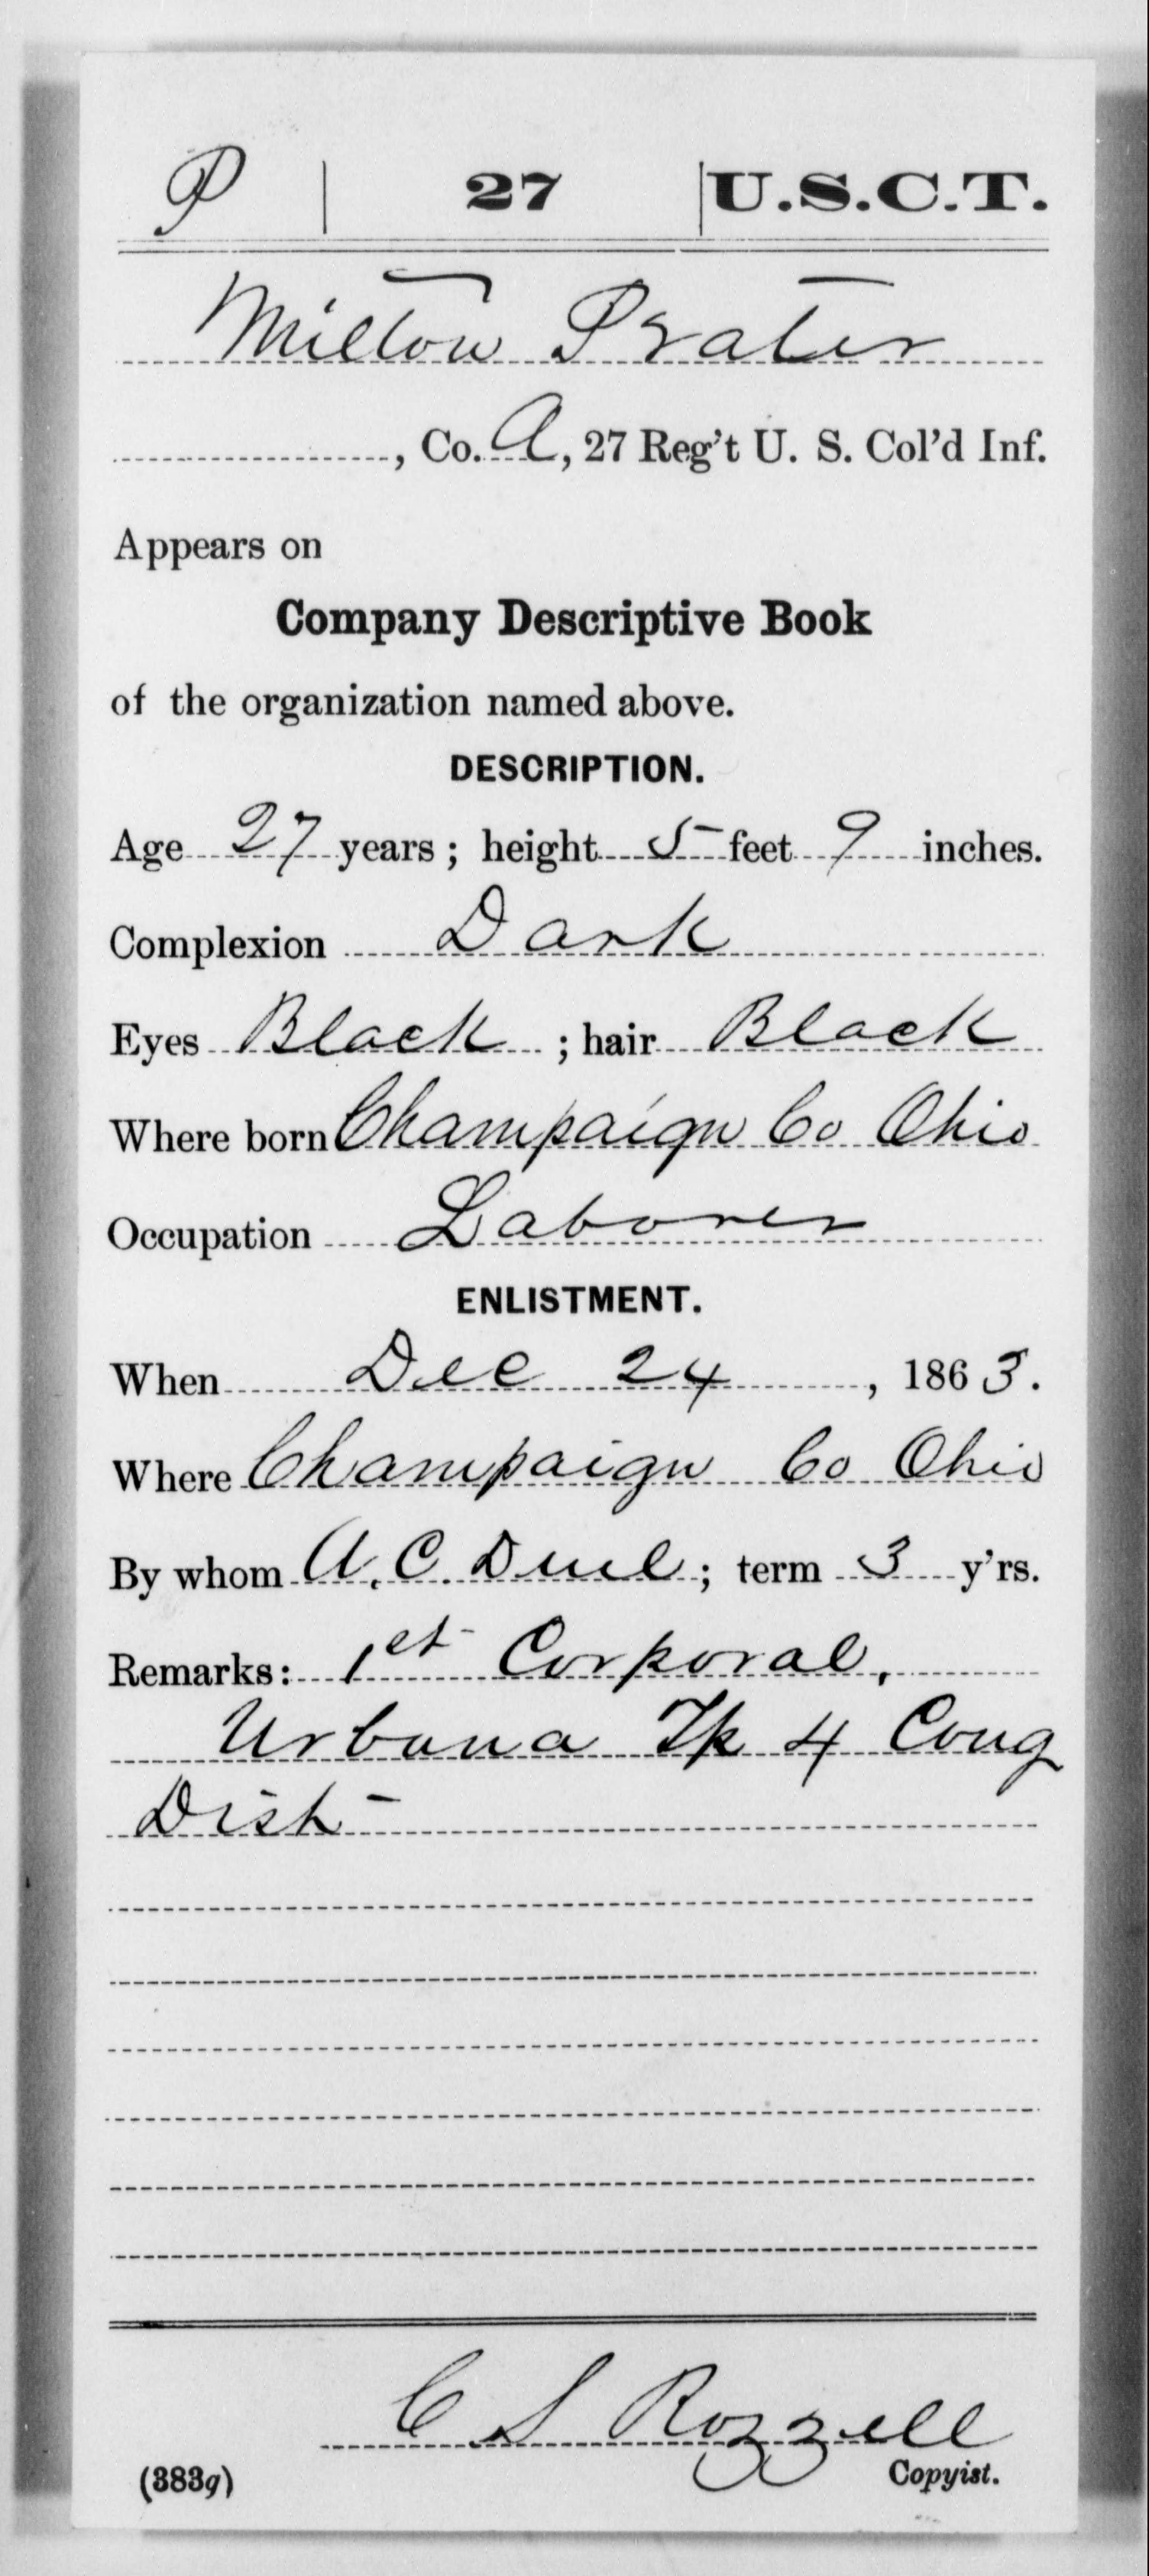 P | 27 | U.S.C.T.
Milton Prater
, Co. A, 27 Reg't U. S. Col'd Inf.
Appears on
Company Descriptive Book
of the organization named above.
DESCRIPTION.
Age 27 years; height 5 feet 9 inches.
Complexion Dark
Eyes Black; hair Black
Where born Champaign Co Ohio
Occupation Laborer
ENLISTMENT.
When Dec 24, 1863.
Where Champaign Co Ohio
By whom A. C. Duel; term 3 y'rs.
Remarks: 1st Corporal,
Urbana Tp 4 Cong
Dist
C S Rozzell
(383g) Copyist.